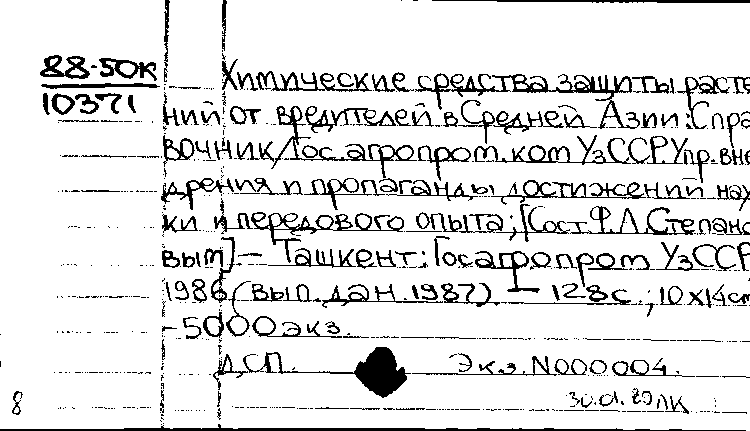 88-50К
10371
Химические средства защиты расте
ний от вредителей в Средней Азии: Спра
вочник/Гос.агропром.ком УзССР.Упр.вне
дрения и пропаганды достижений нау
ки и передового опыта; [Сост. Ф.Л.Степано
вым]. — Ташкент: Госагропром УзССР,
1986 (вып.дан.1987). — 128с.; 10х14см
-5000экз.
ДСП. Экз.N000004.
8 30.01.89ЛК